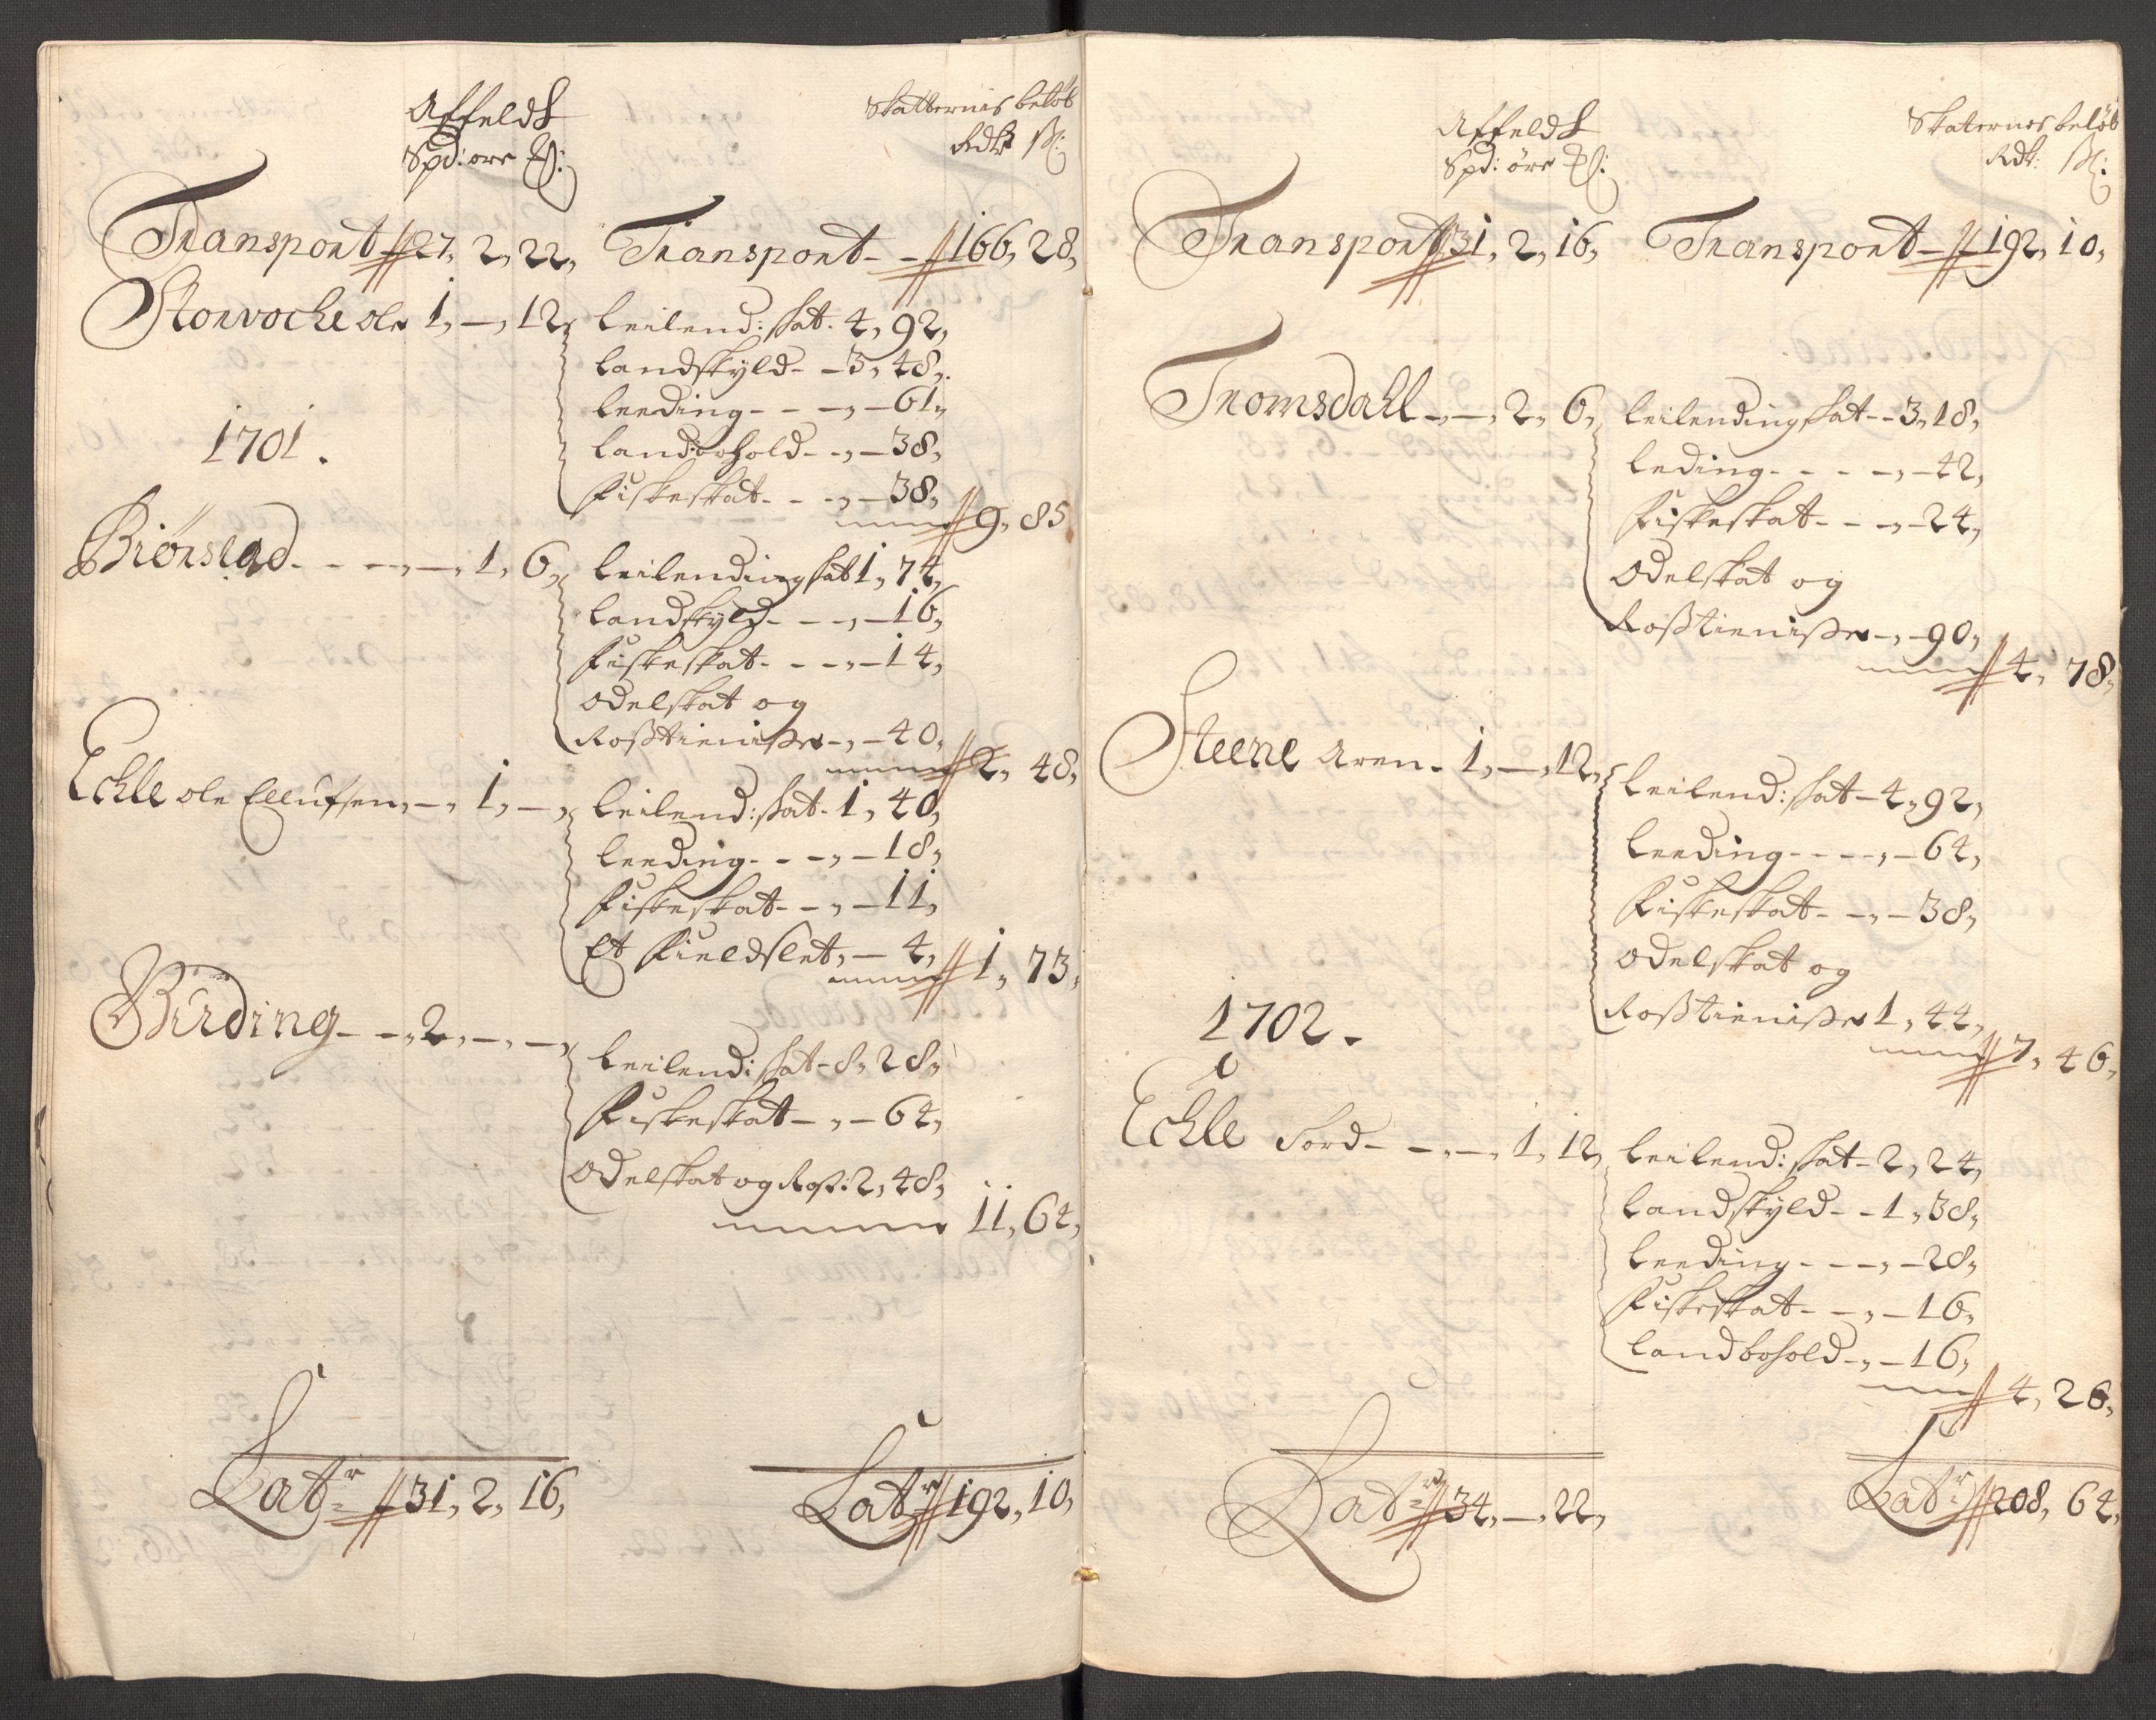 Affeldt
Skatternis beløb
Spd: ore
Rdr ß:
Transport 27, 2, 22, Transport - - 166, 28,
Storvoche ole 1, —, 12, leilend: skat. 4, 92,
landskyld - - 3, 48,
leeding - - - , — 61,
1701.
landbohold - , — 38,
fiskeskat - - , — 38,
9, 85
Biørstad - - - , — , 1, 6, leilending skat 1, 74,
landskyld - - , — 16,
fiskeskat - - - , — 14,
odelskat og
Rosstieniste - , — 40,
2, 48,
Echle ole Ellufsen, —, 1, —, leilend: skat - 1, 40,
leeding - - - , — 18,
fiskeskat - - , — 11,
Et fieldslet, — 4,
1, 73,
Birding - - , 2, —, —, leilend: skat - 8, 28,
fiskeskat — , — 64,
odelskat og Ros: 2, 48,
11, 64,
Latr 31, 2, 16, Latr 192, 10,
Affeldt
Skaternes beløb
Spd: øre
Rdr: ß:
Transport 31, 2, 16, Transport — 192, 10,
Tromsdahl - , — , 2, 6, leilending skat - - 3, 18,
leding - - - - , — 42,
fiskeskat - - , — 24,
odelskat og
Rosstieniste - , — 90,
4, 78,
Steene Aren. 1, —, 12, leilend: skat — 4, 92,
leeding - - - - , — 64,
fiskeskat - - , — 38,
odelskat og
1702.
Rosstieniste 1, 44,
7, 46,
Echle Tord - - , — , 1, 12, leilend: skat - 2, 24,
landskyld - - 1, 38,
leeding - - - , — 28,
fiskeskat - - , — 16,
landbohold - , — 16,
4, 26,
Latr 34, —, 22, Latr 208, 64,